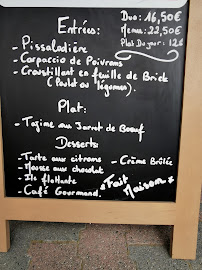 Duo: 16,50€
Entrées: Menu: 22,50€
Plat Du jour: 12€
- Pissaladière
- Carpaccio de Poivrons
- Croustillant en feuille de Brick
( Poulet ou légumes).
Plat:
- Tajine au Jarret de Boeuf
Desserts:
- Tarte aux citrons - Crème Brûlée
- Mousse aux chocolat
- Ile flottante
- Café Gourmand.
* Fait Maison *